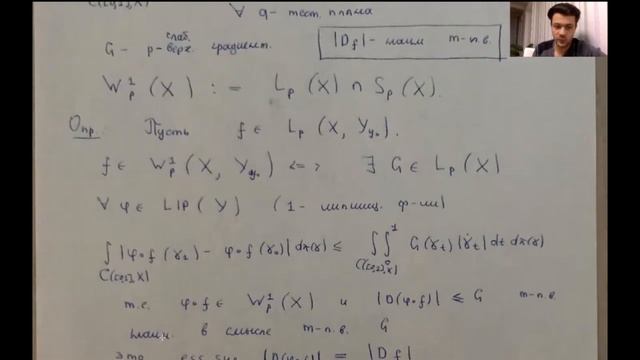 C([0,1],X) ∀ q- тест. плана
G - p - слаб. верх. градиент. |Df| - наим m-п.в.
W_p^1 (X) := L_p (X) ∩ S_p (X).
Опр. Пусть f ∈ L_p (X, Y_{y_0}).
f ∈ W_p^1 (X, Y_{y_0}) <=> ∃ G ∈ L_p (X)
∀ φ ∈ LIP (Y) (1 - липшиц. ф-ии)
∫ |φ∘f(γ_1) - φ∘f(γ_0)| dπ(γ) ≤ ∫∫_0^1 G(γ_t) |γ̇_t| dt dπ(γ)
C([0,1],X) C([0,1],X)
т.е. φ∘f ∈ W_p^1 (X) и |D(φ∘f)| ≤ G m-п.в.
наим. в смысле m-п.в. G
это ess sup |D(φ∘f)| = |Df|